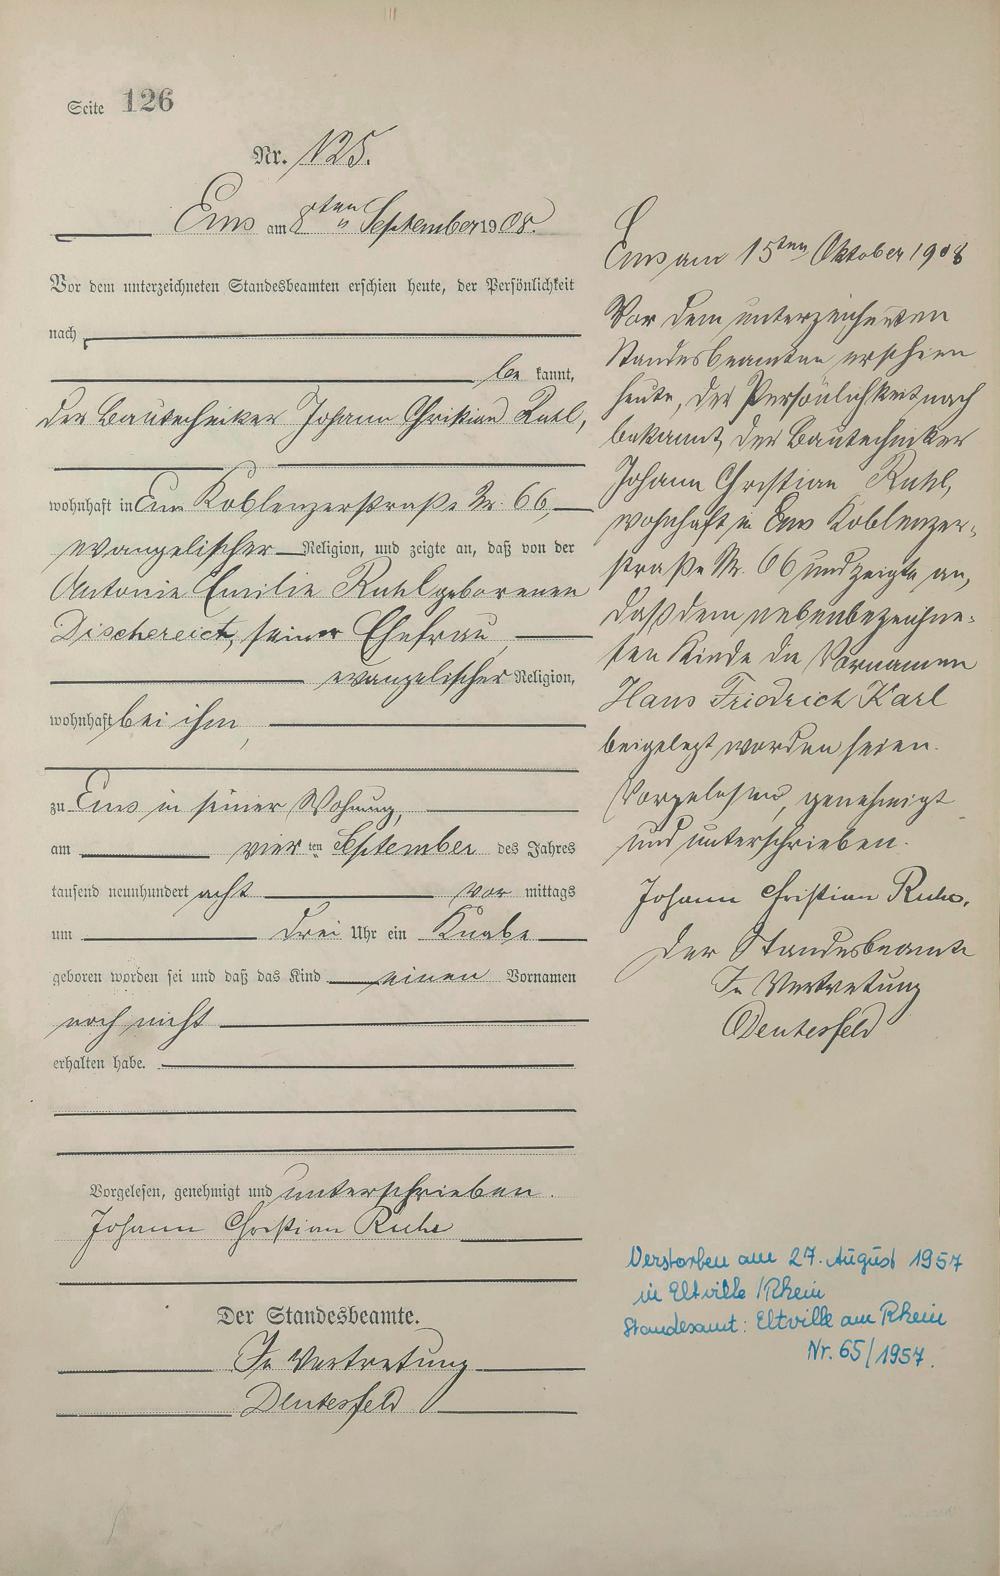 Seite 126
Nr. 125.
Ems am 8ten September 1908.
Vor dem unterzeichneten Standesbeamten erschien heute, der Persönlichkeit
nach
be kannt,
der Bautechniker Johann Christian Ruhl,
wohnhaft in Ems Koblenzerstraße Nr. 66,
evangelischer Religion, und zeigte an, daß von der
Antonie Emilie Ruhl geborenen
Dischereit, seiner Ehefrau,
evangelischer Religion,
wohnhaft bei ihm,
zu Ems in seiner Wohnung,
am vier ten September des Jahres
tausend neunhundert acht vor mittags
um drei Uhr ein Knabe
geboren worden sei und daß das Kind einen Vornamen
noch nicht
erhalten habe.
Vorgelesen, genehmigt und unterschrieben.
Johann Christian Ruhl
Der Standesbeamte.
In Vertretung
Ems am 15ten Oktober 1908
Vor dem unterzeichneten
Standesbeamten erschien
heute, der Persönlichkeit nach
bekannt, der Bautechniker
Johann Christian Ruhl,
wohnhaft in Ems Koblenzer-
straße Nr. 66 und zeigte an,
daß dem nebenbezeichne-
ten Kinde die Vornamen
Hans Friedrich Karl
beigelegt worden seien.
Vorgelesen, genehmigt
und unterschrieben.
Johann Christian Ruhl.
Der Standesbeamte
In Vertretung
Verstorben am 27. August 1957
in Eltville/Rhein
Standesamt: Eltville am Rhein
Nr. 65/1957.